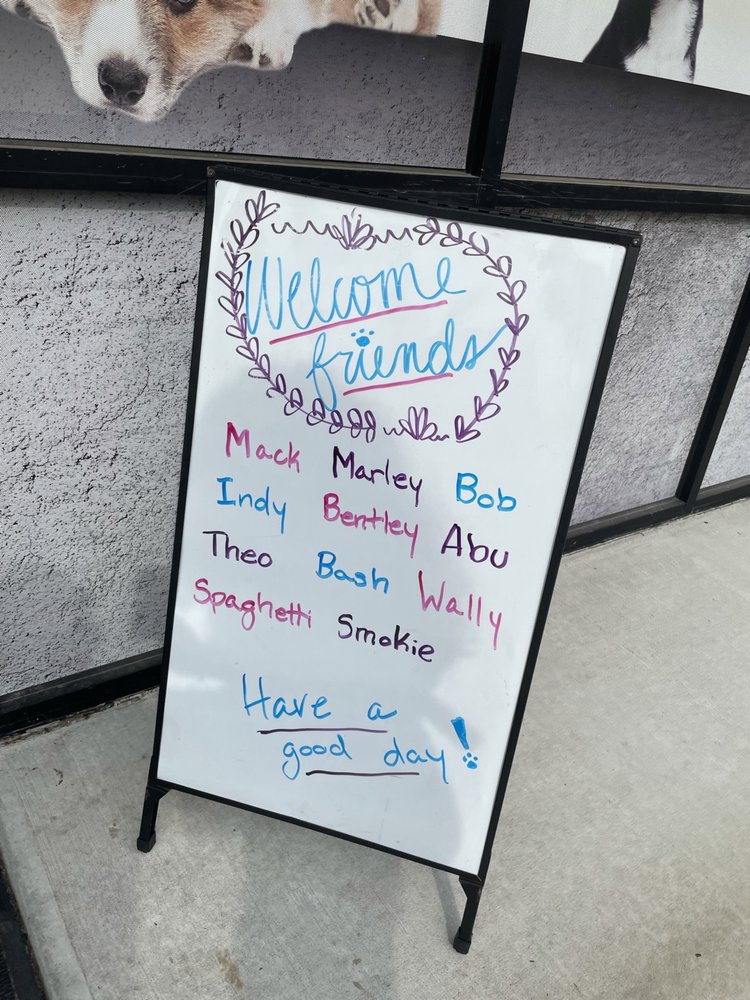 Welcome
friends
Mack Marley Bob
Indy Bentley Abu
Theo Bash Wally
Spaghetti Smokie
Have a
good day!